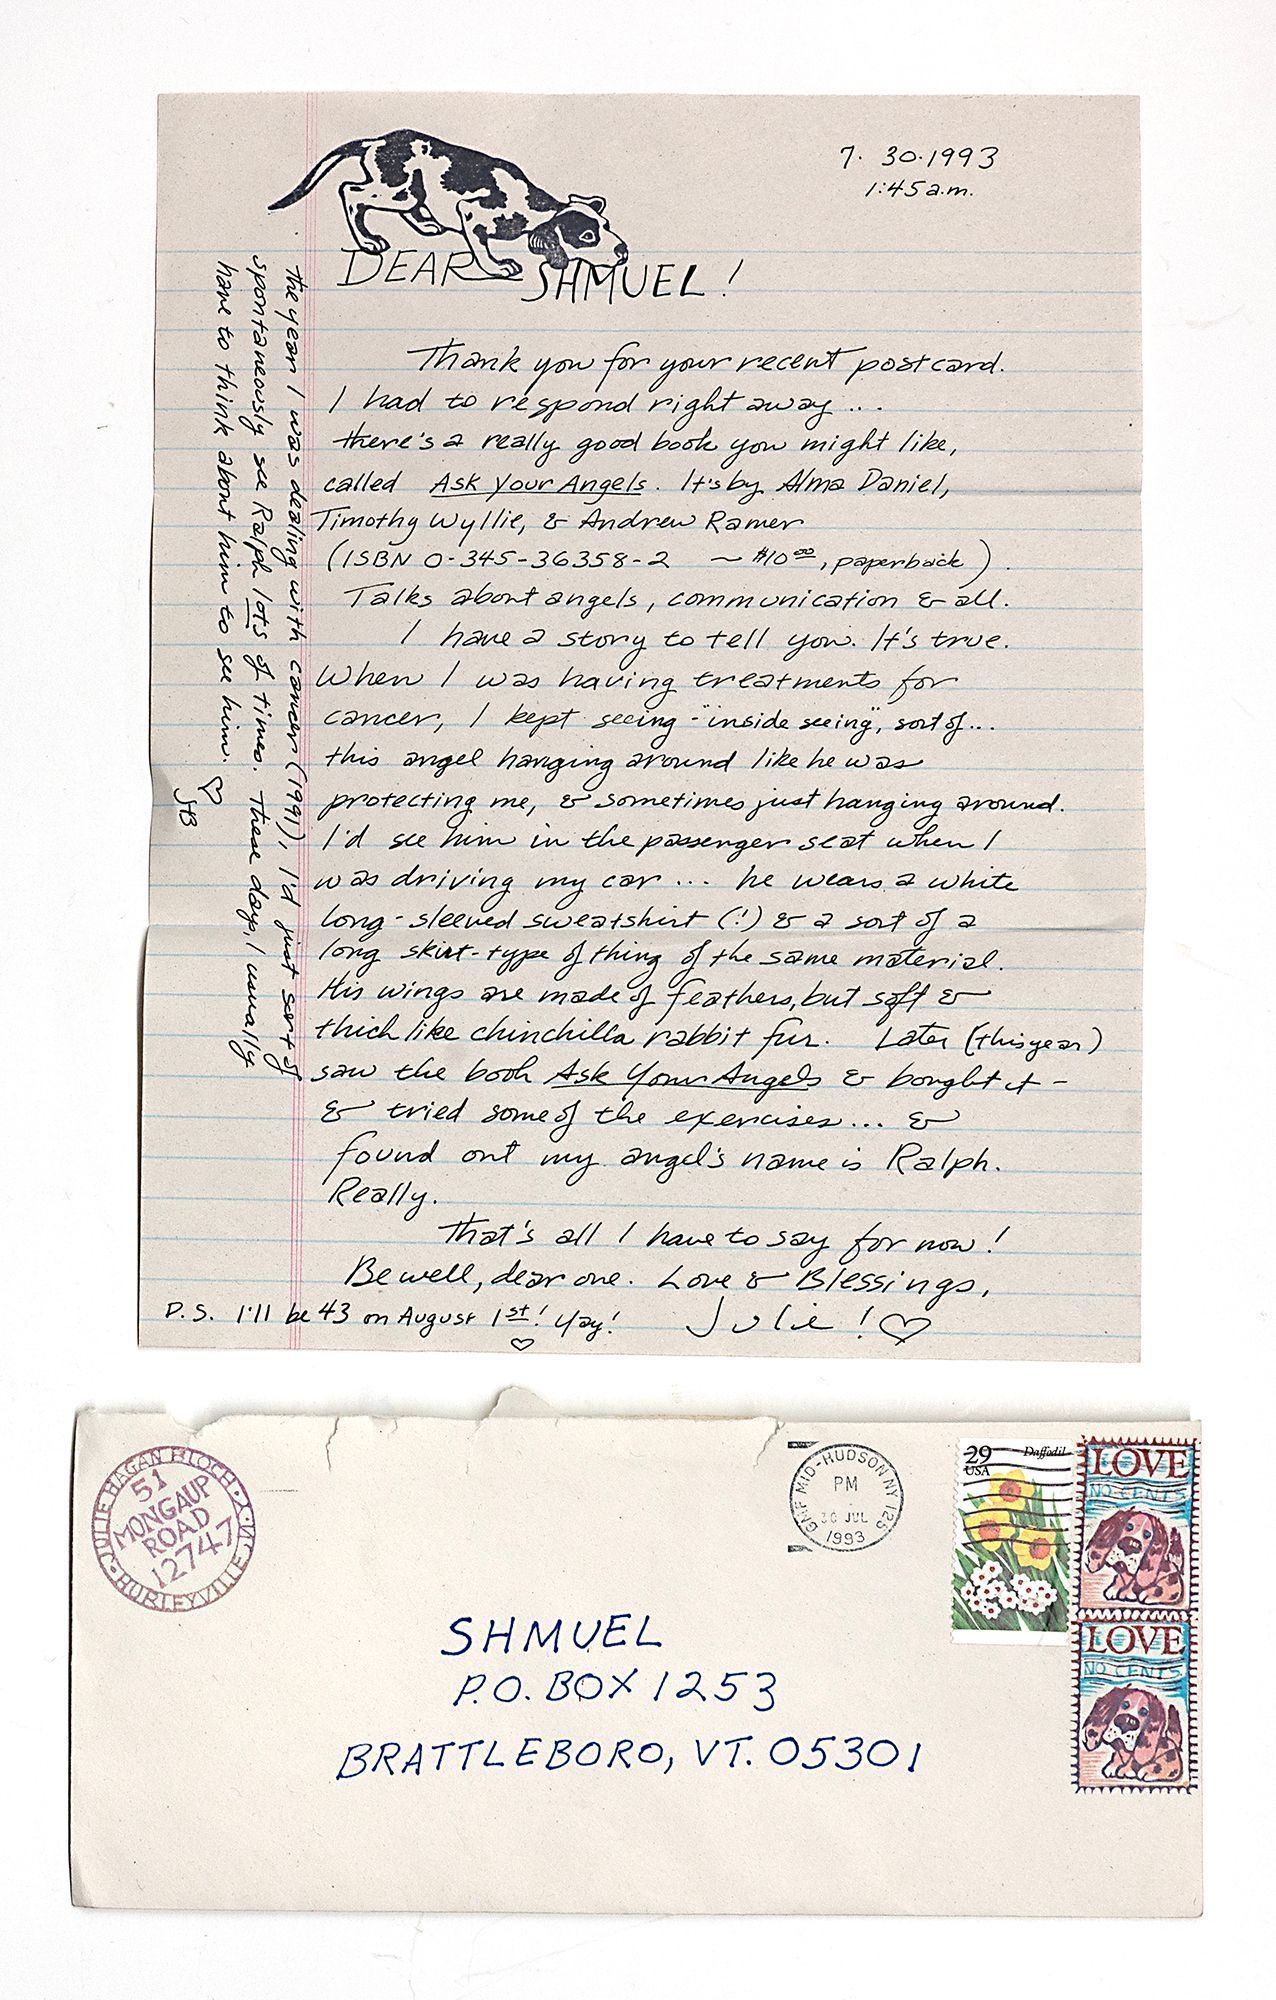 7. 30.1993
1:45 a.m.
DEAR SHMUEL!
Thank you for your recent postcard.
I had to respond right away...
there's a really good book you might like,
called Ask Your Angels. It's by Alma Daniel,
Timothy Wyllie, & Andrew Ramer
(ISBN 0-345-36358-2 ~ $10.00, paperback).
Talks about angels, communication & all.
I have a story to tell you. It's true.
When I was having treatments for
cancer, I kept seeing - "inside seeing", sort of...
this angel hanging around like he was
protecting me, & sometimes just hanging around.
I'd see him in the passenger seat when I
was driving my car ... he wears a white
long-sleeved sweatshirt (!) & a sort of a
long skirt-type of thing of the same material.
His wings are made of feathers, but soft &
thick like chinchilla rabbit fur. Later (this year)
saw the book Ask Your Angels & bought it -
& tried some of the exercises... &
found out my angel's name is Ralph.
Really.
That's all I have to say for now!
Be well, dear one. Love & Blessings,
Julie! ♡
P.S. I'll be 43 on August 1st! Yay!
♡
The year I was dealing with cancer (1991), I'd just sort of
spontaneously see Ralph lots of times. These days, I usually
have to think about him to see him. ♡
JHB
JULIE HAGAN BLOCH
51
MONGAUP
ROAD
12747
HURLEYVILLE N.Y.
GMF MID-HUDSON NY 125
PM
30 JUL
1993
29
USA
Daffodil
LOVE
NO CENTS
LOVE
NO CENTS
SHMUEL
P.O. BOX 1253
BRATTLEBORO, VT. 05301